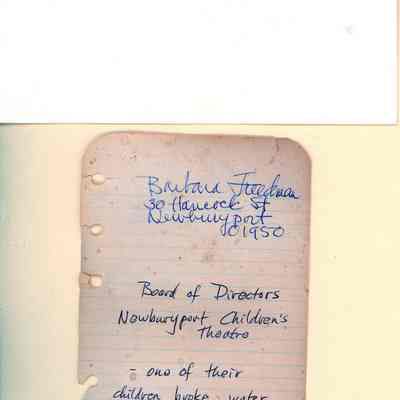 Barbara Freedman
30 Hancock St
Newburyport
01950
Board of Directors
Newburyport Children's
Theatre
- one of their
children broke water